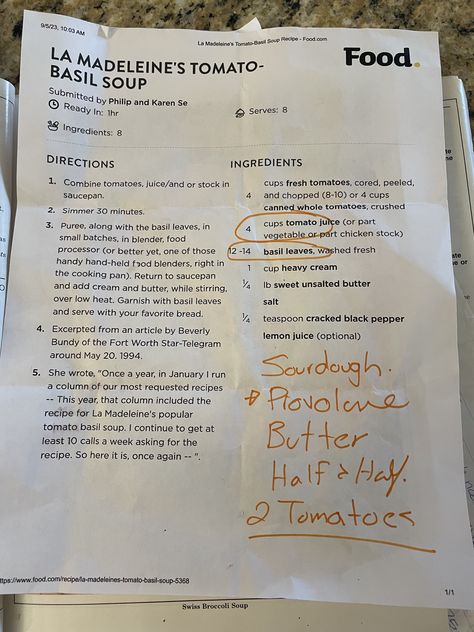 9/5/23, 10:03 AM
La Madeleine's Tomato-Basil Soup Recipe - Food.com
LA MADELEINE'S TOMATO-
BASIL SOUP
Food.
Submitted by Philip and Karen Se
Ready In: 1hr
Serves: 8
Ingredients: 8
DIRECTIONS
1. Combine tomatoes, juice/and or stock in
saucepan.
2. Simmer 30 minutes.
3. Puree, along with the basil leaves, in
small batches, in blender, food
processor (or better yet, one of those
handy hand-held food blenders, right in
the cooking pan). Return to saucepan
and add cream and butter, while stirring,
over low heat. Garnish with basil leaves
and serve with your favorite bread.
4. Excerpted from an article by Beverly
Bundy of the Fort Worth Star-Telegram
around May 20. 1994.
5. She wrote, "Once a year, in January I run
a column of our most requested recipes
-- This year, that column included the
recipe for La Madeleine's popular
tomato basil soup. I continue to get at
least 10 calls a week asking for the
recipe. So here it is, once again -- ".
INGREDIENTS
cups fresh tomatoes, cored, peeled,
4 and chopped (8-10) or 4 cups
canned whole tomatoes, crushed
4 cups tomato juice (or part
vegetable or part chicken stock)
12 -14 basil leaves, washed fresh
1 cup heavy cream
1⁄4 lb sweet unsalted butter
salt
1⁄4 teaspoon cracked black pepper
lemon juice (optional)
Sourdough.
Provolone
Butter
Half & Half.
2 Tomatoes
ttps://www.food.com/recipe/la-madeleines-tomato-basil-soup-5368
1/1
Swiss Broccoli Soup